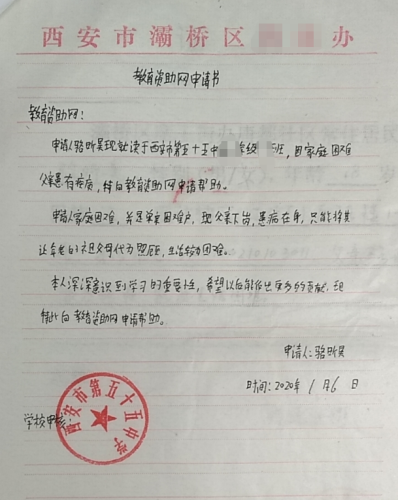 西安市灞桥区 办
教育资助网申请书
教育资助网：
申请人骆昕昊现就读于西安市第五十五中 年级 班，因家庭困难
父亲患有疾病，特向教育资助网申请帮助。
申请人家庭困难，并是单亲困难户，现父亲下岗，患病在身，只能将其
让年老的祖父母代为照顾，生活较为困难。
本人深深意识到学习的重要性，希望以后能作出更多的贡献，现
特此向教育资助网申请帮助。
申请人：骆昕昊
时间：2020年1月6日
学校审核：
西安市第五十五中学